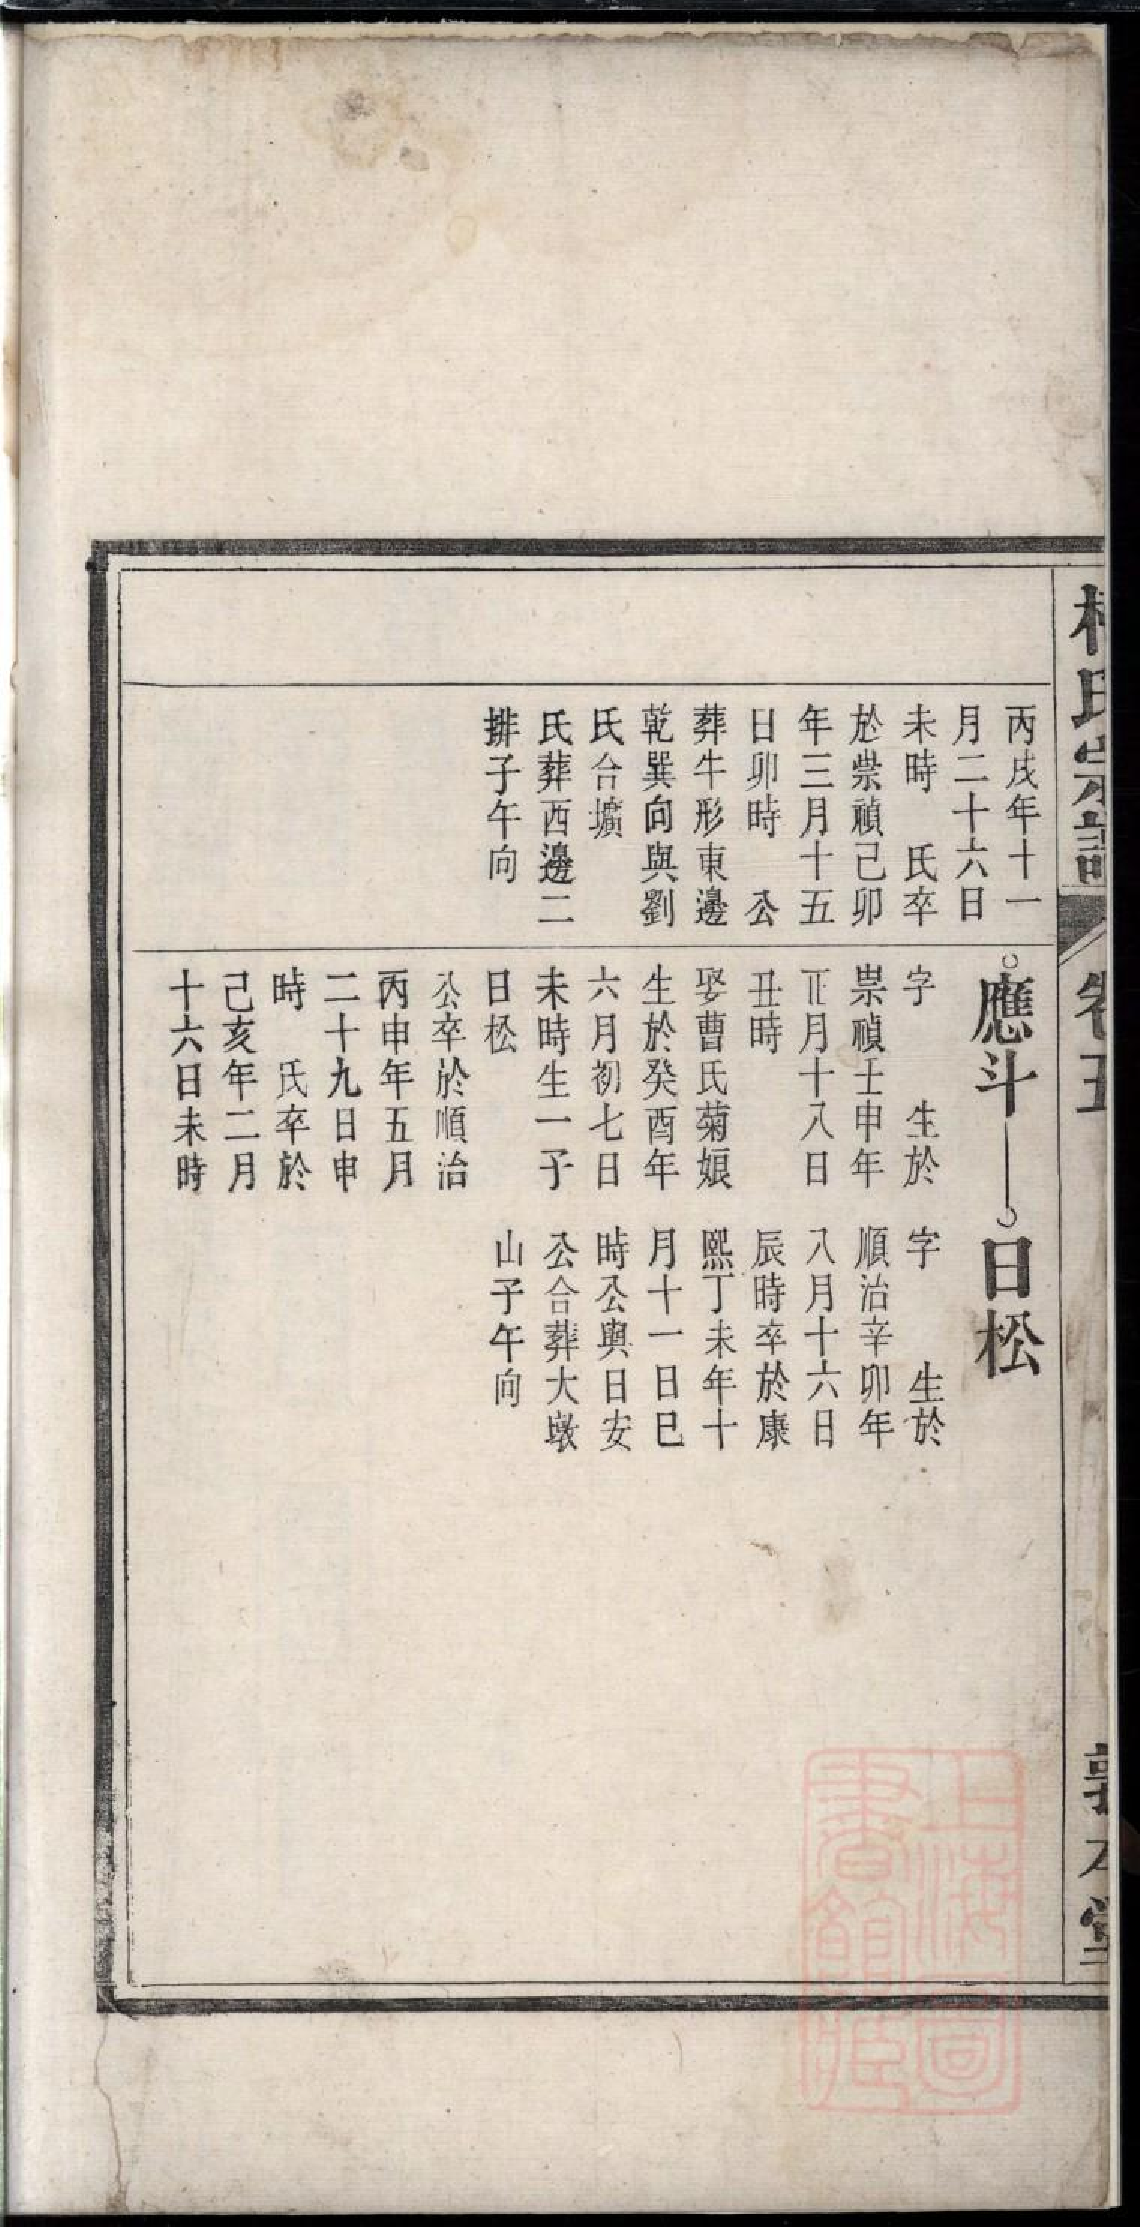 氏宗譜
卷五
本堂
丙戌年十一
月二十六日
未時　氏卒
於崇禎己卯
年三月十五
日卯時　公
葬牛形東邊
乾巽向與劉
氏合壙
氏葬西邊二
排子午向
應斗
字　　生於
崇禎壬申年
正月十八日
丑時
娶曹氏菊娘
生於癸酉年
六月初七日
未時生一子
日松
公卒於順治
丙申年五月
二十九日申
時　氏卒於
己亥年二月
十六日未時
日松
字　　生於
順治辛卯年
八月十六日
辰時卒於康
熙丁未年十
月十一日巳
時公與日安
公合葬大墩
山子午向
上海圖
書館藏